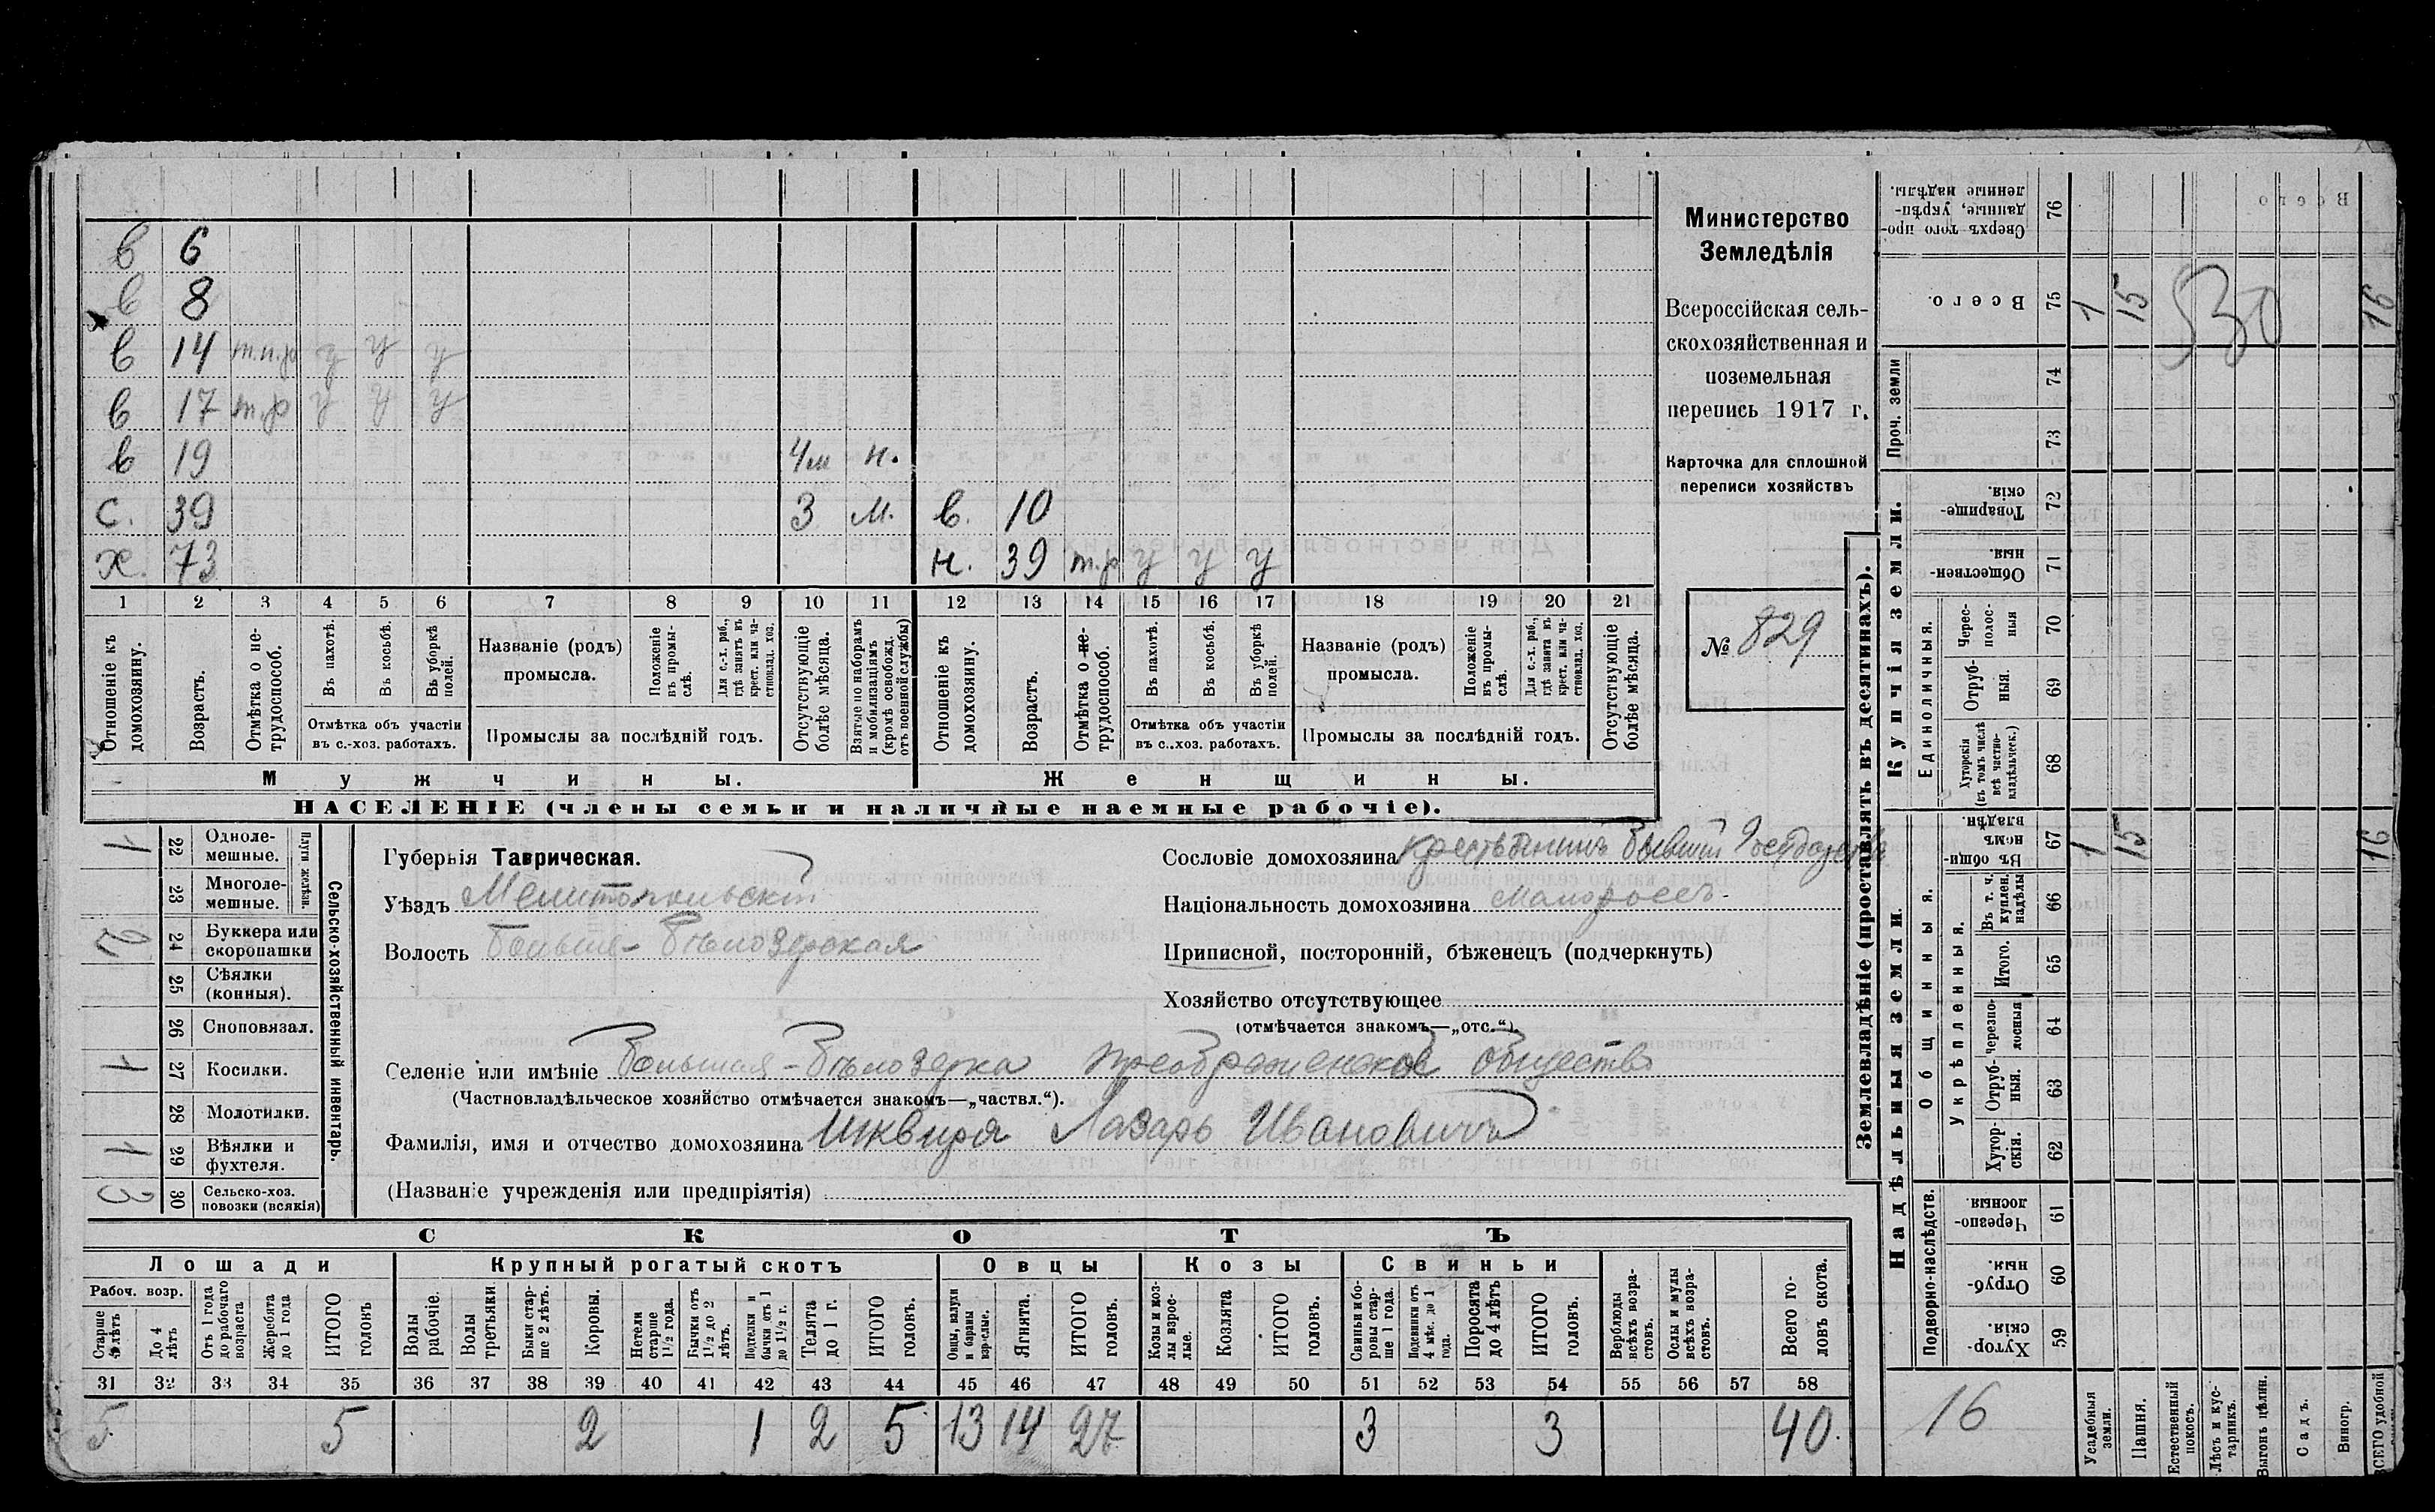 в 6
в 8
в 14 т.п.р у у у
в 17 т.р у у у
в 19 4м н.
с. 39 3 м. в. 10
х. 73 н. 39 т.р у у у
1 2 3 4 5 6 7 8 9 10 11 12 13 14 15 16 17 18 19 20 21
Отношеніе къ домохозяину.
Возрастъ.
Отмѣтка о не-трудоспособ.
Въ пахотѣ.
Въ косьбѣ.
Въ уборкѣ полей.
Отмѣтка объ участіи въ с.-хоз. работахъ.
Названіе (родъ) промысла.
Положеніе въ промы-слѣ.
Для с.-х. раб., гдѣ занятъ въ крест. или ча-стновлад. хоз.
Промыслы за послѣдній годъ.
Отсутствующіе болѣе мѣсяца.
Взятые по наборамъ и мобилизаціямъ (кромѣ освобожд. отъ военной службы)
Отношеніе къ домохозяину.
Возрастъ.
Отмѣтка о не-трудоспособ.
Въ пахотѣ.
Въ косьбѣ.
Въ уборкѣ полей.
Отмѣтка объ участіи въ с.-хоз. работахъ.
Названіе (родъ) промысла.
Положеніе въ промы-слѣ.
Для с.-х. раб., гдѣ занята въ крест. или ча-стновлад. хоз.
Промыслы за послѣдній годъ.
Отсутствующіе болѣе мѣсяца.
Мужчины. Женщины.
НАСЕЛЕНІЕ (члены семьи и наличные наемные рабочіе).
Министерство
Земледѣлія
Всероссійская сель-
скохозяйственная и
поземельная
перепись 1917 г.
Карточка для сплошной
переписи хозяйствъ
№ 829
1 22 Одноле-мешные.
23 Многоле-мешные.
Плуги желѣзн.
2 24 Буккера или скоропашки
25 Сѣялки (конныя).
26 Сноповязал.
1 27 Косилки.
28 Молотилки.
1 29 Вѣялки и фухтеля.
3 30 Сельско-хоз. повозки (всякія)
Сельско-хозяйственный инвентарь.
Губернія Таврическая.
Уѣздъ Мелитопольскій
Волость Больше-Бѣлозерская
Сословіе домохозяина крестьянинъ бывшій
Національность домохозяина малороссъ
Приписной, посторонній, бѣженецъ (подчеркнуть)
Хозяйство отсутствующее
(отмѣчается знакомъ—„отс.“).
Селеніе или имѣніе Большая-Бѣлозерка Преображенское общество
(Частновладѣльческое хозяйство отмѣчается знакомъ—„частвл.“).
Фамилія, имя и отчество домохозяина Шквиря Лазарь Ивановичъ
(Названіе учрежденія или предпріятія)
СКОТЪ
Лошади Крупный рогатый скотъ Овцы Козы Свиньи
Рабоч. возр.
Старше 4 лѣтъ
До 4 лѣтъ
Отъ 1 года до рабочаго возраста
Жеребята до 1 года
ИТОГО головъ
Волы рабочіе.
Волы третьяки.
Быки стар-ше 2 лѣтъ.
Коровы.
Нетели старше 1½ года.
Бычки отъ 1½ до 2 лѣтъ.
Подтелки и бычки отъ 1 до 1½ г.
Телята до 1 г.
ИТОГО головъ.
Овцы, валухи и бараны взрослые.
Ягнята.
ИТОГО головъ.
Козы и коз-лы взрос-лые.
Козлята
ИТОГО головъ.
Свиньи и бо-ровы стар-ше 1 года.
Подсвинки отъ 4 мѣс. до 1 года.
Поросята до 4 лѣтъ
ИТОГО головъ.
Верблюды всѣхъ возра-стовъ.
Ослы и мулы всѣхъ возра-стовъ.
Всего го-ловъ скота.
31 32 33 34 35 36 37 38 39 40 41 42 43 44 45 46 47 48 49 50 51 52 53 54 55 56 57 58
5 5 2 1 2 5 13 14 27 3 3 40.
Землевладѣніе (проставлять въ десятинахъ).
Надѣльныя земли. Купчія земли.
Подворно-наслѣдств. Общинныя. Укрѣпленныя. Единоличныя. Проч. земли
Хутор-скія. 59
Отруб-ныя. 60
Черезпо-лосныя 61
Хутор-скія. 62
Отруб-ныя. 63
Черезпо-лосныя 64
Итого. 65
Въ т. ч. куплен. надѣлы 66
Въ общи-номъ владѣн. 67 1 15 16
Хуторскія (въ томъ числѣ всѣ частно-владѣльческ.) 68
Отруб-ныя. 69
Черес-полос-ныя 70
Обществен-ныя. 71
Товарище-скія. 72
73
74
Всего. 75 1 15 16
530
Сверхъ того про-данные, укрѣп-ленные надѣлы. 76
16
Усадебныя земли.
Пашня.
Естественный покосъ.
Лѣсъ и кус-тарникъ.
Выгонъ цѣлин.
Садъ.
Виногр.
ВСЕГО удобной